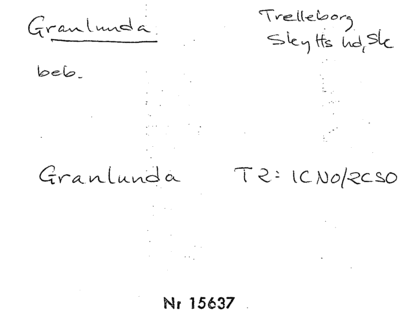 Granlunda Trelleborg
Skytts hd, Sk
beb.
Granlunda T2: 1CNO/2CSO
Nr 15637